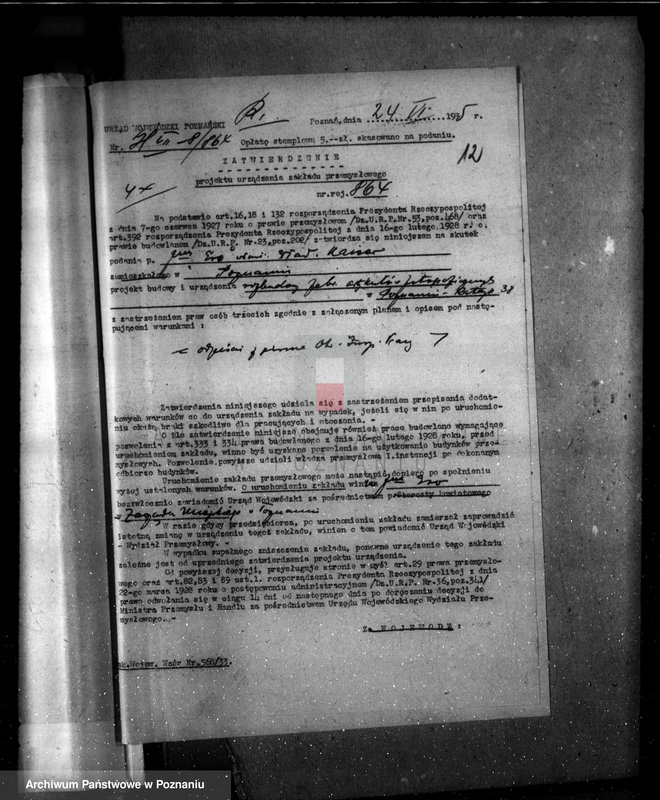 URZĄD WOJEWÓDZKI POZNAŃSKI
Poznań, dnia 24 VI 1935 r.
Nr. 8/864
Opłatę stemplową 5.--zł. skasowano na podaniu.
12
ZATWIERDZENIE
projektu urządzenia zakładu przemysłowego
nr.rej. 864
4x
Na podstawie art.16,18 i 132 rozporządzenia Prezydenta Rzeczypospolitej
z dnia 7-go czerwca 1927 roku o prawie przemysłowem /Dz.U.R.P.Nr.53,poz.468/ oraz
art.392 rozporządzenia Prezydenta Rzeczypospolitej z dnia 16-go lutego 1928 r. o
prawie budowlanem /Dz.U.R.P. Nr.23,poz.202/ zatwierdza się niniejszem na skutek
podania p.
zamieszkałego w Poznaniu
projekt budowy i urządzenia
w Poznaniu 38
z zastrzeżeniem praw osób trzecich zgodnie z załączonym planem i opisem pod nastę-
pującemi warunkami :
Zatwierdzenia niniejszego udziela się z zastrzeżeniem przepisania dodat-
kowych warunków co do urządzenia zakładu na wypadek, jeżeli się w nim po uruchomie-
niu okażą braki szkodliwe dla pracujących i otoczenia. -
O ile zatwierdzenie niniejsze obejmuje również prace budowlane wymagające
pozwolenia z art.333 i 334 prawa budowlanego z dnia 16-go lutego 1928 roku, przed
uruchomieniem zakładu, winno być uzyskane pozwolenie na użytkowanie budynków prze-
mysłowych. Pozwolenie powyższe udzieli władza przemysłowa I.instancji po dokonanym
odbiorze budynków.
Uruchomienie zakładu przemysłowego może nastąpić dopiero po spełnieniu
wyżej ustalonych warunków. O uruchomieniu zakładu winien
bezzwłocznie zawiadomić Urząd Wojewódzki za pośrednictwem p.Starosty Powiatowego
Zarządu Miejskiego w Poznaniu
W razie gdyby przedsiębiorca, po uruchomieniu zakładu zamierzał zaprowadzić
istotną zmianę w urządzeniu tegoż zakładu, winien o tem powiadomić Urząd Wojewódzki
- Wydział Przemysłowy. -
W wypadku zupełnego zniszczenia zakładu, ponowne urządzenie tego zakładu
zależne jest od uprzedniego zatwierdzenia projektu urządzenia.
Od powyższej decyzji, przysługuje stronie w myśl art.29 prawa przemysło-
wego oraz art.82,83 i 89 ust.1. rozporządzenia Prezydenta Rzeczypospolitej z dnia
22-go marca 1928 roku o postępowaniu administracyjnem /Dz.U.R.P. Nr.36,poz.341/
prawo odwołania się w ciągu 14 dni od następnego dnia po doręczeniu decyzji do
Ministra Przemysłu i Handlu za pośrednictwem Urzędu Wojewódzkiego Wydziału Prze-
mysłowego.-
Za WOJEWODĘ:
Wojew. Wzór Nr.568/33.
Archiwum Państwowe w Poznaniu